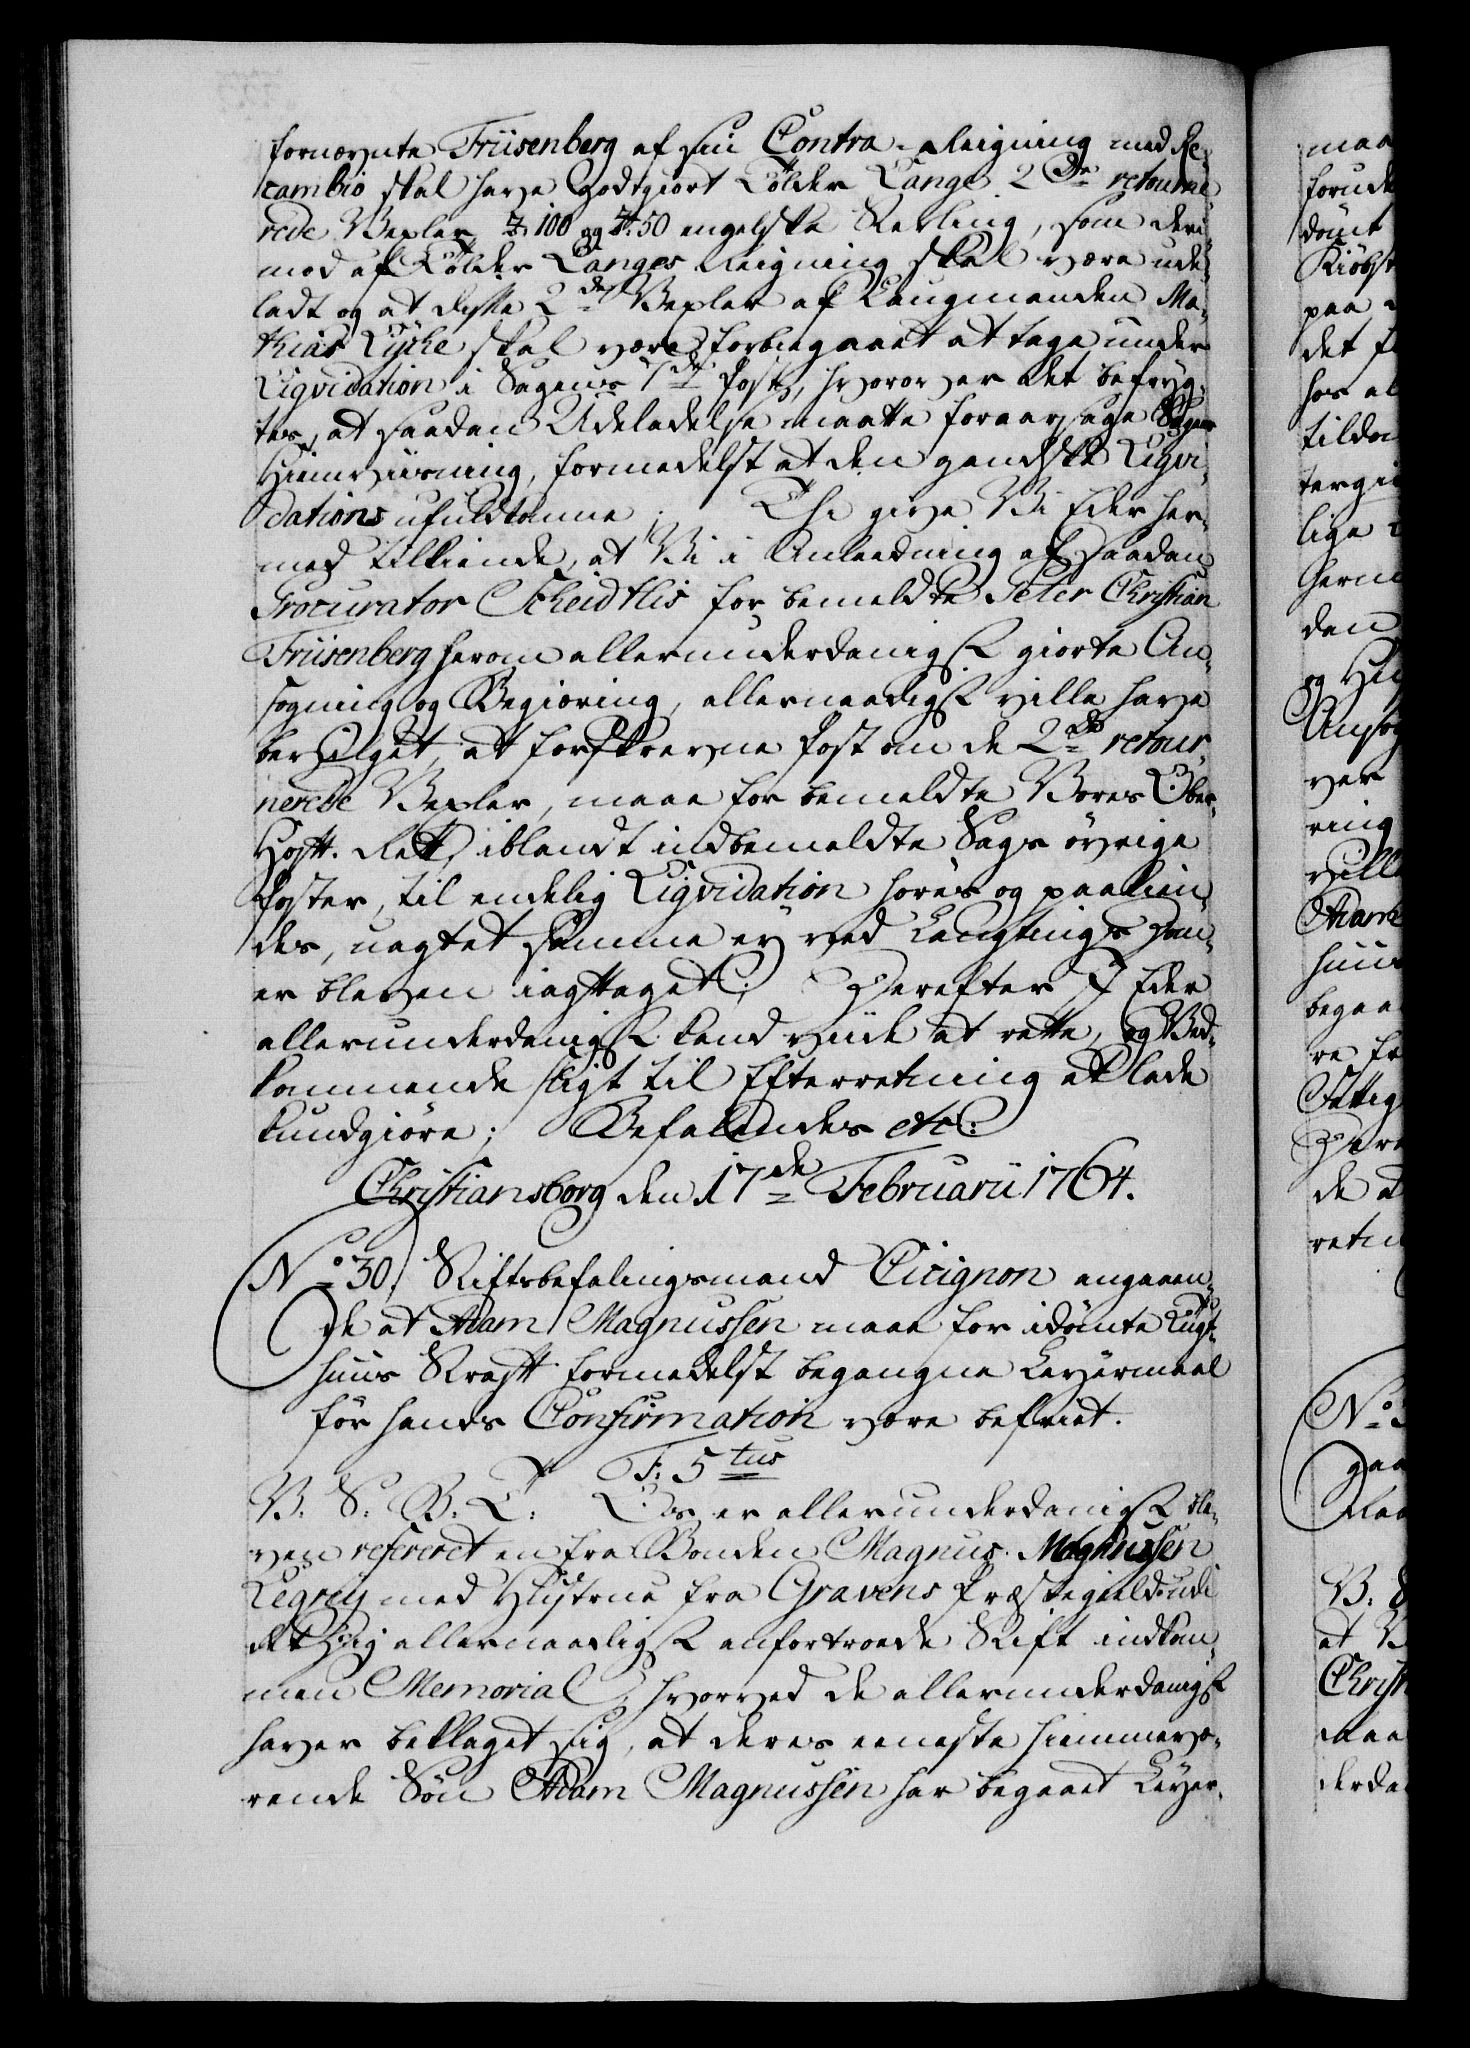 fornævnte Friisenberg af sin Contra-Reigning med Re-
cambio skal have Godtgiort Tolder Lange 2de retourne-
rede Vexler, ₶ 100 og ₶ 50 engelske Sterling, som deri-
mod af Tolder Langes Reigning skal være ude-
ladt og at disse 2de Vexler af Laugmanden Ma-
thias Lycke skal være forbigaaet at tage under
Liqvidation i Sagens 7de Post, hvorover det befryg-
tes, at saadan Udeladelse maatte foraarsage Sagens
Hiemviisning, formedelst at den gandske Liqvi-
dations ufuldkomne. Thi give Vi Eder her-
med tilkiende, at Vi i Anledning af saadan
Procurator Scheidtlis for bemeldte Peter Christian
Friisenberg herom allerunderdanigst giorte An-
søgning og Begiæring, allernaadigst ville have
bevilget, at forskrevne Post om de 2de retour-
nerede Vexler, maae for bemeldte Vores Ober-
Hoff-Rett, iblandt indbemeldte Sags øvrige
Poster, til endelig Liqvidation høres og paakien-
des, uagtet samme ey ved Laugtings Ret-
er bleven iagttaget; Herefter I Eder
allerunderdanigst kand viide at rette, og Ved-
kommende sligt til Efterretning at lade
kundgiøre; Befalendes etc:
Christiansborg den 17de Februarii 1764.
No 30. Stiftsbefalingsmand Cicignon angaaen-
de at Adam Magnussen maae for idømte Tugt-
huus Straff formedelst begangne Leyermaal
før hands Confirmation være befriet.
F: 5tus
V. S. G. T: Os er allerunderdanigst ble-
ven refereret en fra Bonden Magnus Magnussen
Legrey med Hustrue fra Gravens Præstegield udi
det Dig allernaadigst anfortroede Stift indkom-
men Memorial, hvorved de allerunderdanigst
haver beklaget sig, at deres eeneste hiemmevæ-
rende Søn Adam Magnussen har begaaet Leyer-